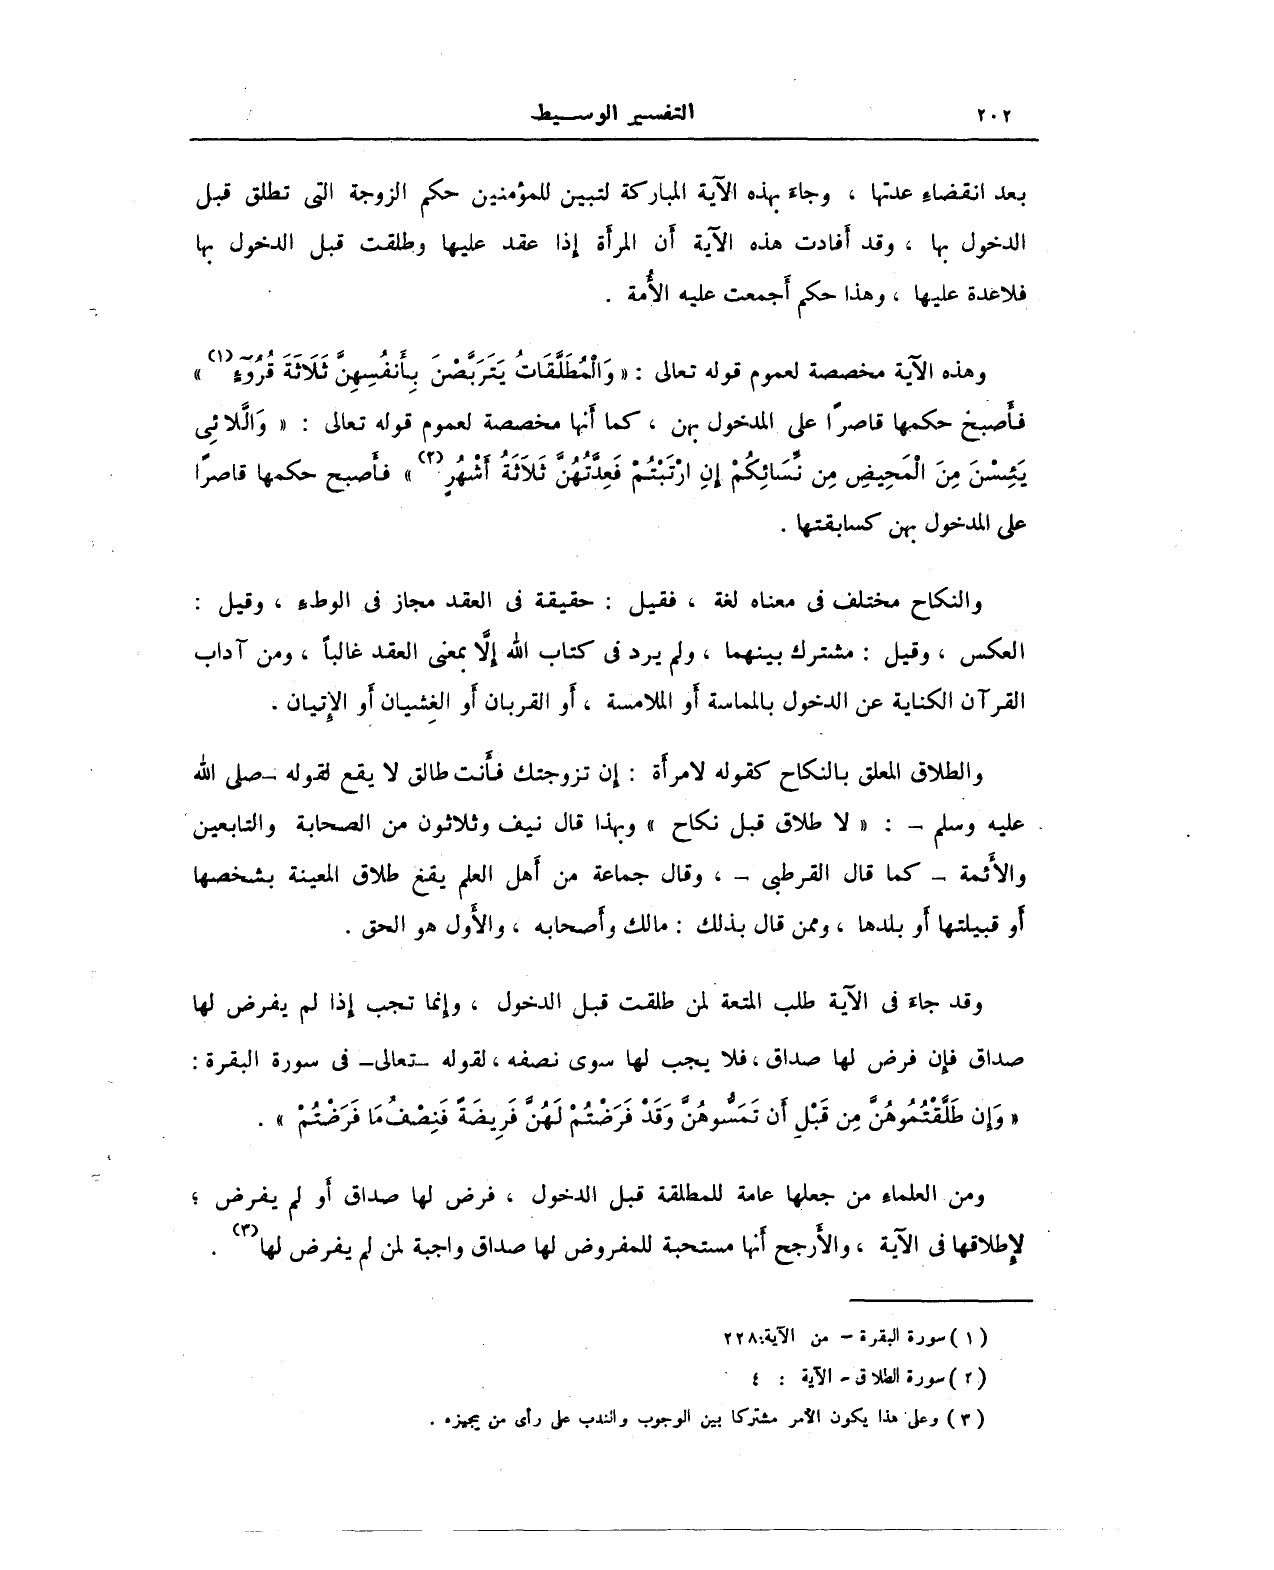 ٢٠٢
التفسير الوسيط
بعد انقضاء عدتها ، وجاءَ بهذه الآية المباركة لتبين للمؤمنين حكم الزوجة التى تطلق قبل
الدخول بها ، وقد أفادت هذه الآية أن المرأة إذا عقد عليها وطلقت قبل الدخول بها
فلاعدة عليها ، وهذا حكم أجمعت عليه الأُمة .
وهذه الآية مخصصة لعموم قوله تعالى : « وَالْمُطَلَّقَاتُ يَتَرَبَّصْنَ بِأَنفُسِهِنَّ ثَلَاثَةَ قُرُوٓءٍ (١) »
فأَصبح حكمها قاصرًا على المدخول بهن ، كما أنها مخصصة لعموم قوله تعالى : « وَاللَّائِى
يَئِسْنَ مِنَ الْمَحِيضِ مِن نِّسَائِكُمْ إِنِ ارْتَبْتُمْ فَعِدَّتُهُنَّ ثَلَاثَةُ أَشْهُرٍ (٢) » فأَصبح حكمها قاصرًا
على المدخول بهن كسابقتها .
والنكاح مختلف فى معناه لغة ، فقيل : حقيقة فى العقد مجاز فى الوطء ، وقيل :
العكس ، وقيل : مشترك بينهما ، ولم يرد فى كتاب الله إلَّا بمعنى العقد غالباً ، ومن آداب
القرآن الكناية عن الدخول بالمماسة أو الملامسة ، أو القربان أو الغشيان أو الإتيان .
والطلاق المعلق بالنكاح كقوله لامرأة : إن تزوجتك فأَنت طالق لا يقع لقوله – صلى الله
عليه وسلم – : « لا طلاق قبل نكاح » وبهذا قال نيف وثلاثون من الصحابة والتابعين
والأَئمة – كما قال القرطبى – ، وقال جماعة من أهل العلم يقع طلاق المعينة بشخصها
أو قبيلتها أو بلدها ، وممن قال بذلك : مالك وأصحابه ، والأَول هو الحق .
وقد جاءَ فى الآية طلب المتعة لمن طلقت قبل الدخول ، وإنما تجب إذا لم يفرض لها
صداق فإن فرض لها صداق ، فلا يجب لها سوى نصفه ، لقوله – تعالى – فى سورة البقرة :
« وَإِن طَلَّقْتُمُوهُنَّ مِن قَبْلِ أَن تَمَسُّوهُنَّ وَقَدْ فَرَضْتُمْ لَهُنَّ فَرِيضَةً فَنِصْفُ مَا فَرَضْتُمْ » .
ومن العلماء من جعلها عامة للمطلقة قبل الدخول ، فرض لها صداق أو لم يفرض ؛
لإطلاقها فى الآية ، والأَرجح أنها مستحبة للمفروض لها صداق واجبة لمن لم يفرض لها (٣) .
( ١ ) سورة البقرة – من الآية : ٢٢٨
( ٢ ) سورة الطلاق – الآية : ٤
( ٣ ) وعلى هذا يكون الأمر مشتركا بين الوجوب والندب على رأى من يجيزه .